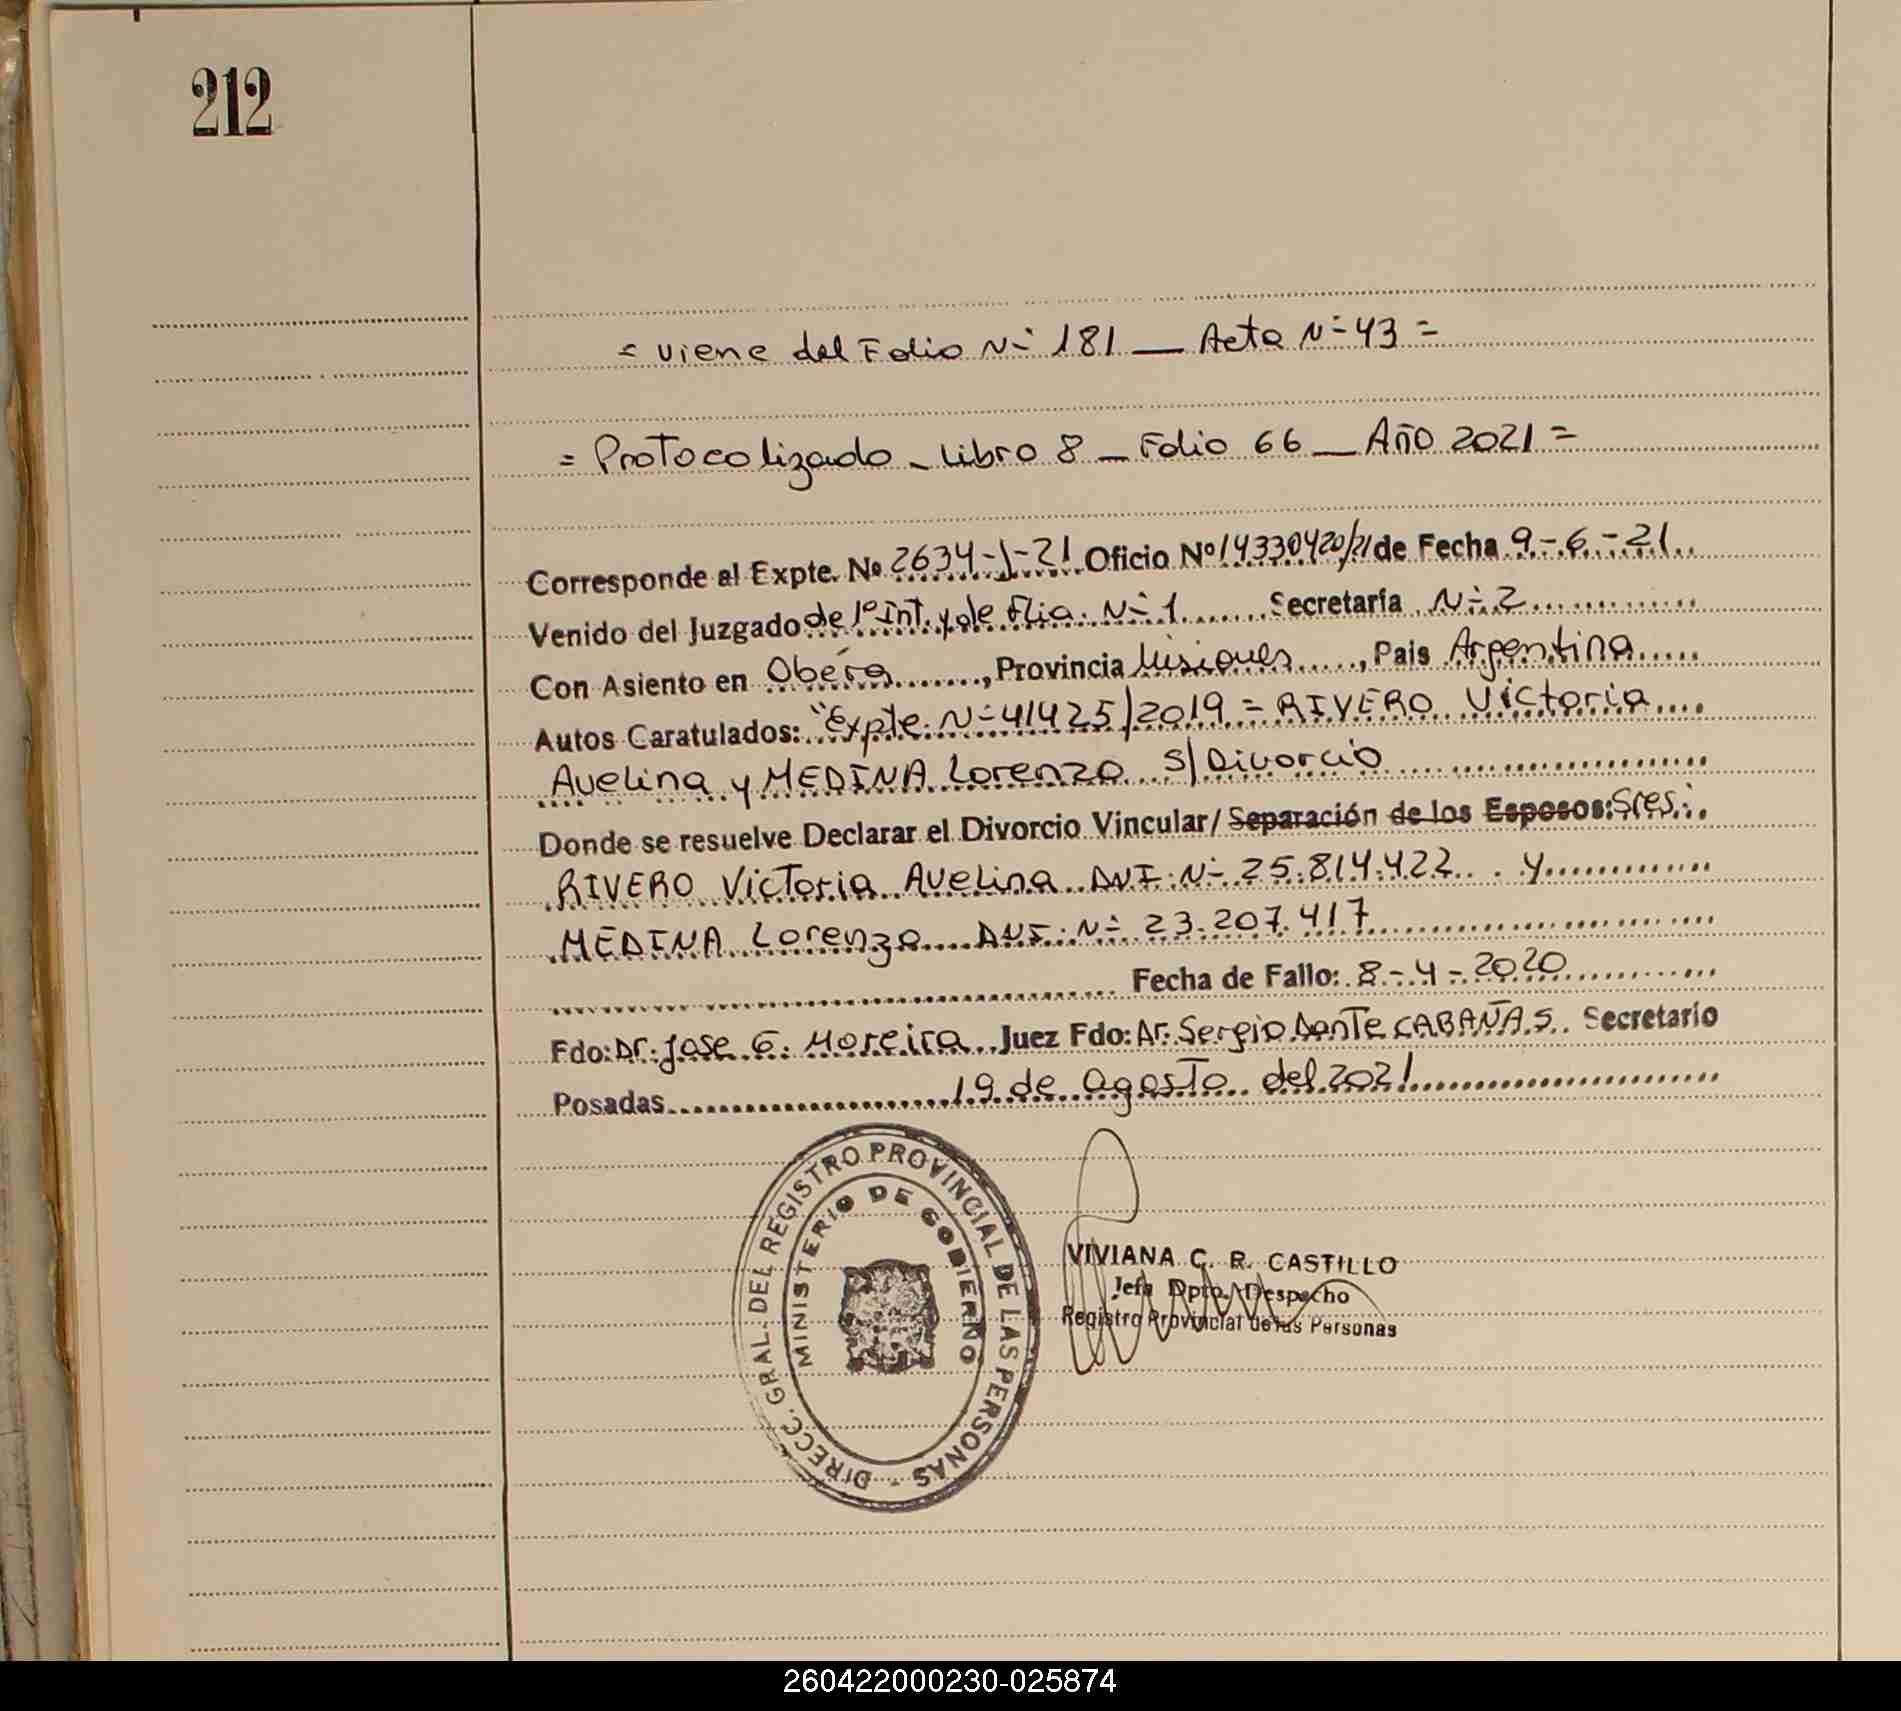 212
= Viene del Folio Nº 181 — Acta Nº 43 =
= Protocolizado - Libro 8 - Folio 66 — AÑO 2021 =
Corresponde al Expte. Nº 2634-J-21 Oficio Nº 14330420/21 de Fecha 9-6-21
Venido del Juzgado de 1º Int. y de Flia. Nº 1 Secretaría Nº 2
Con Asiento en Oberá, Provincia Misiones, Pais Argentina
Autos Caratulados: "Expte. Nº 41425/2019 = RIVERO Victoria
Avelina y MEDINA Lorenzo S/Divorcio
Donde se resuelve Declarar el Divorcio Vincular/ Separación de los Esposos: Sres:
RIVERO Victoria Avelina DNI. Nº 25.814.422 y
MEDINA Lorenzo DNI. Nº 23.207.417
Fecha de Fallo: 8-4-2020
Fdo: Dr. Jose G. Moreira Juez Fdo: Dr. Sergio Dante CABAÑAS. Secretario
Posadas 19 de agosto del 2021
DIRECC. GRAL. DEL REGISTRO PROVINCIAL DE LAS PERSONAS -
MINISTERIO DE GOBIERNO
VIVIANA C. R. CASTILLO
Jefa Dpto. Despacho
Registro Provincial de las Personas
260422000230-025874